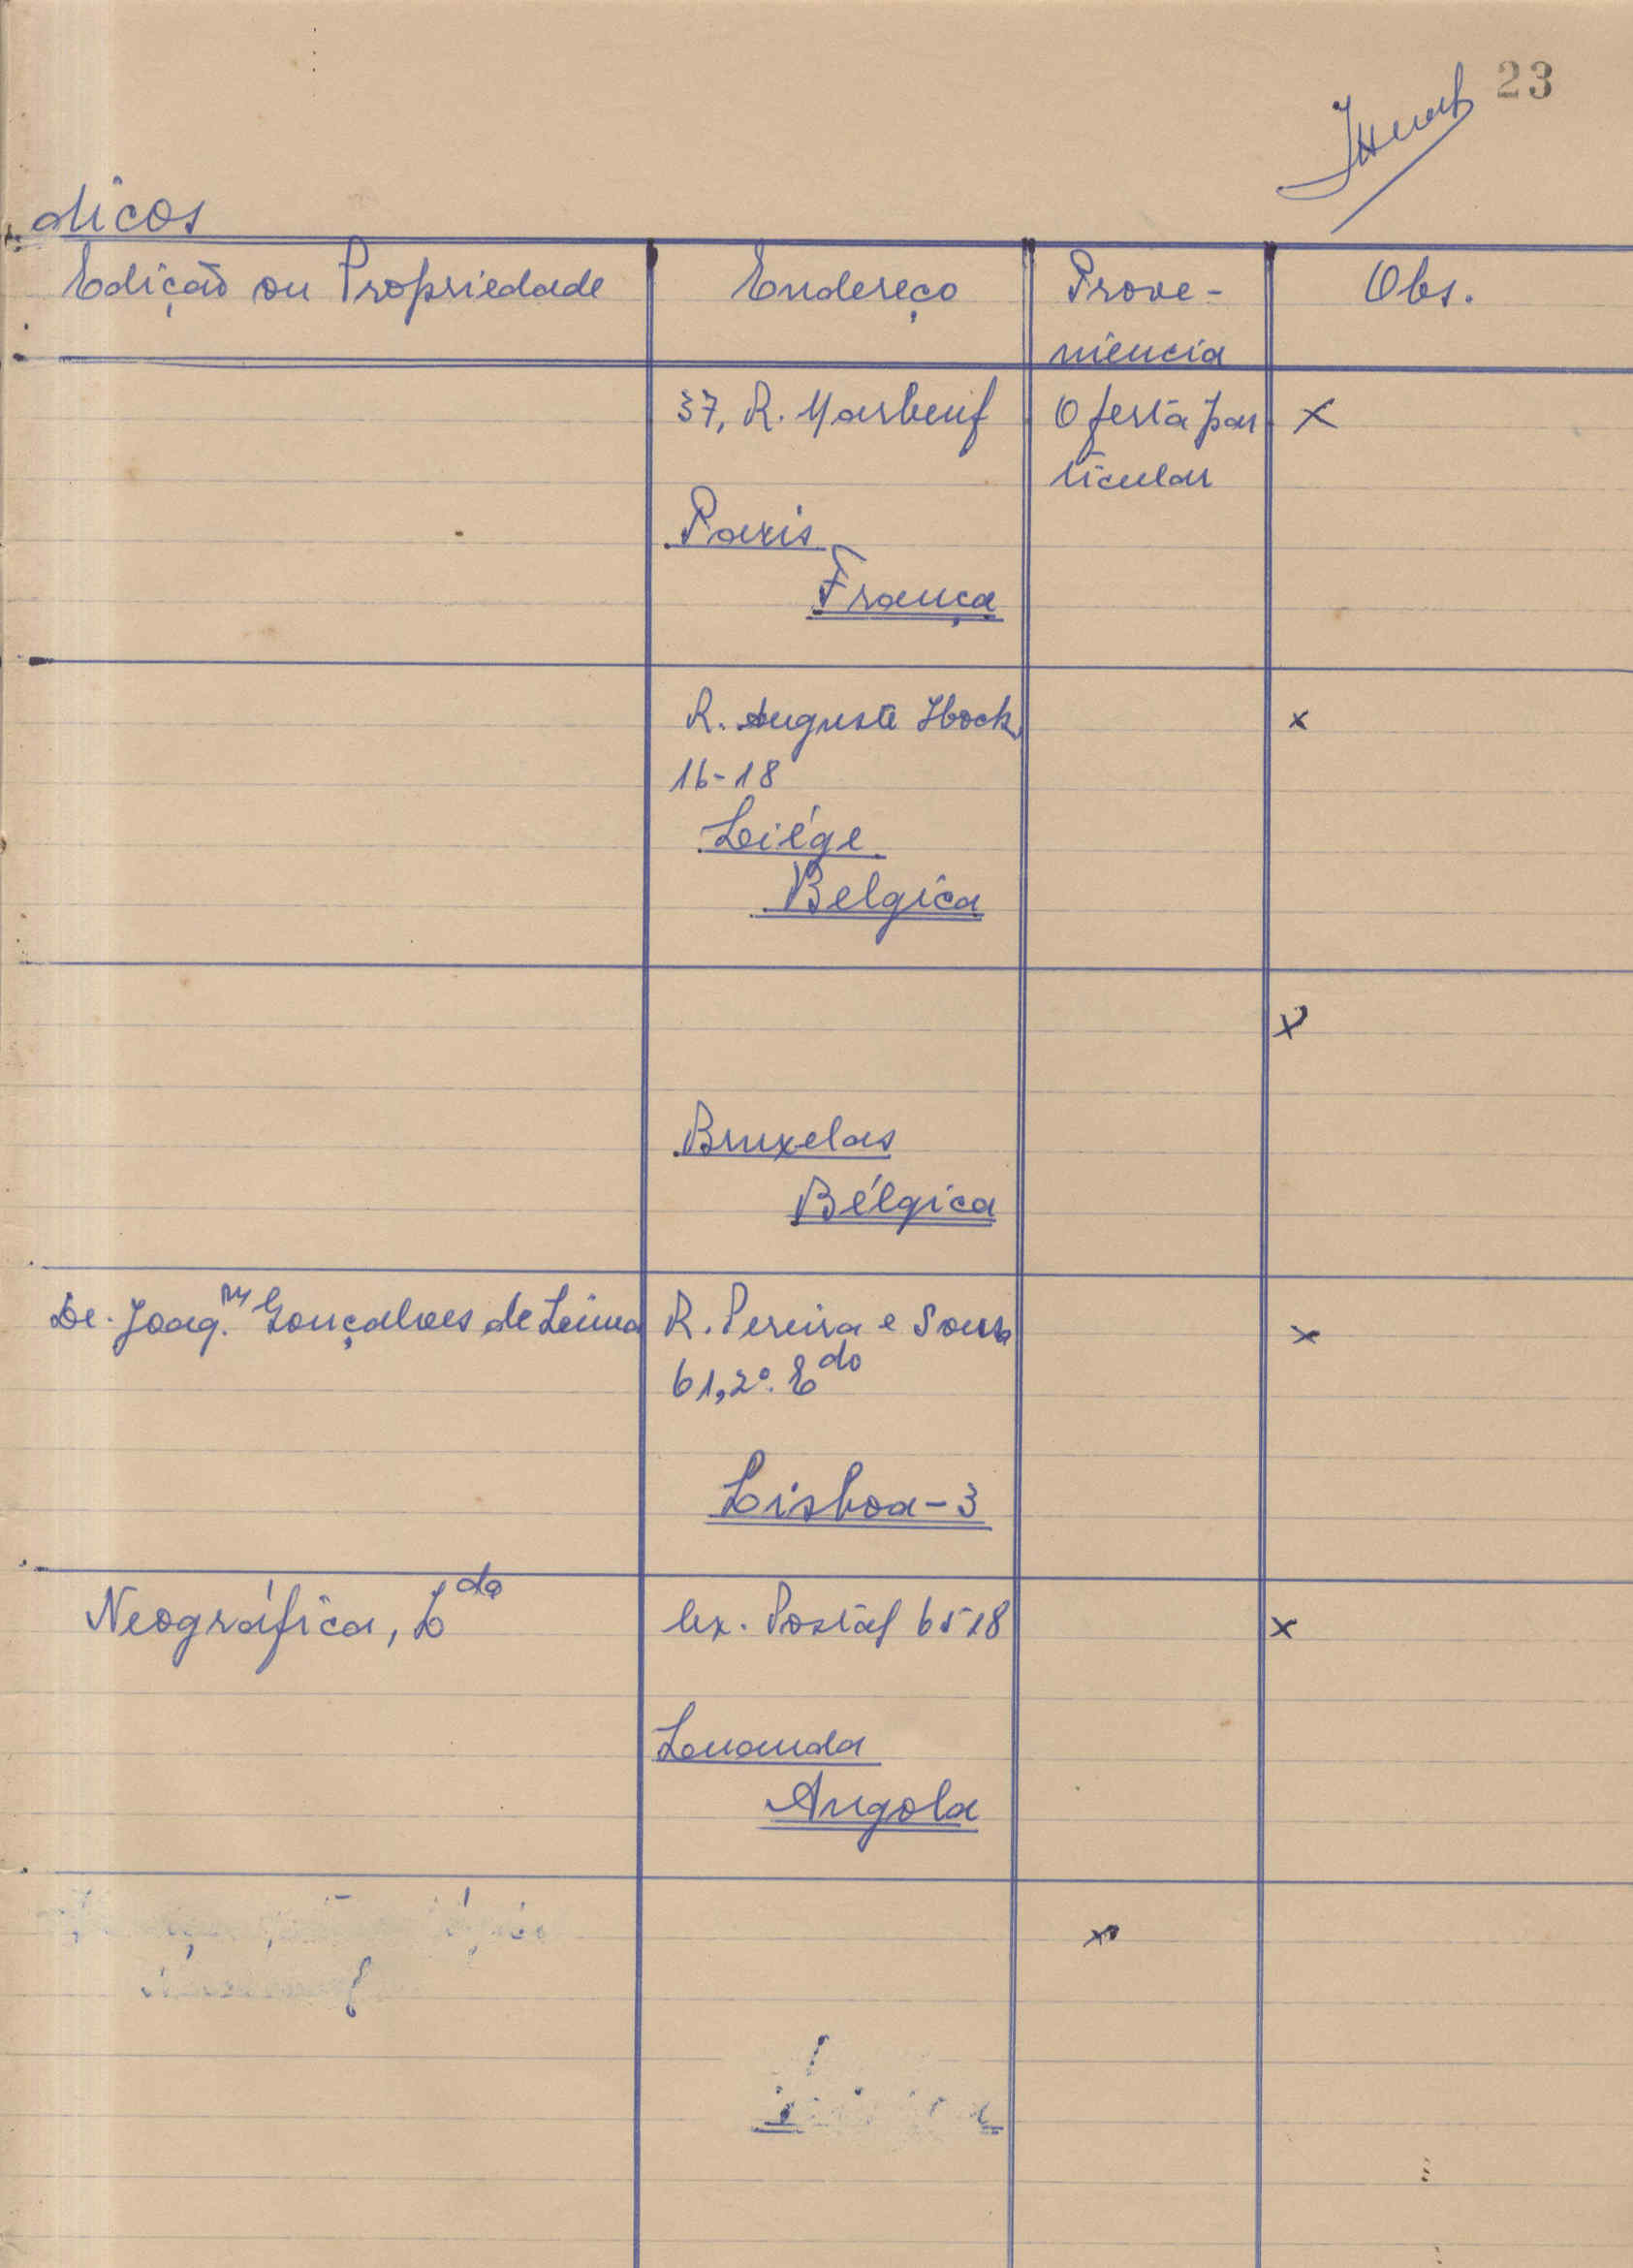 23
dicos
Edição ou Propriedade Endereço Prove-
niência Obs.
37, R. Marbeuf Oferta par x
ticular
Paris
França
R. Auguste Hock, x
16-18
Liége
Belgica
x
Bruxelas
Bélgica
De Joaq.m Gonçalves de Lima R. Pereira e Sousa x
61, 2º. Edo
Lisboa-3
Neográfica, Lda Cx. Postal 6518 x
Luanda
Angola
x